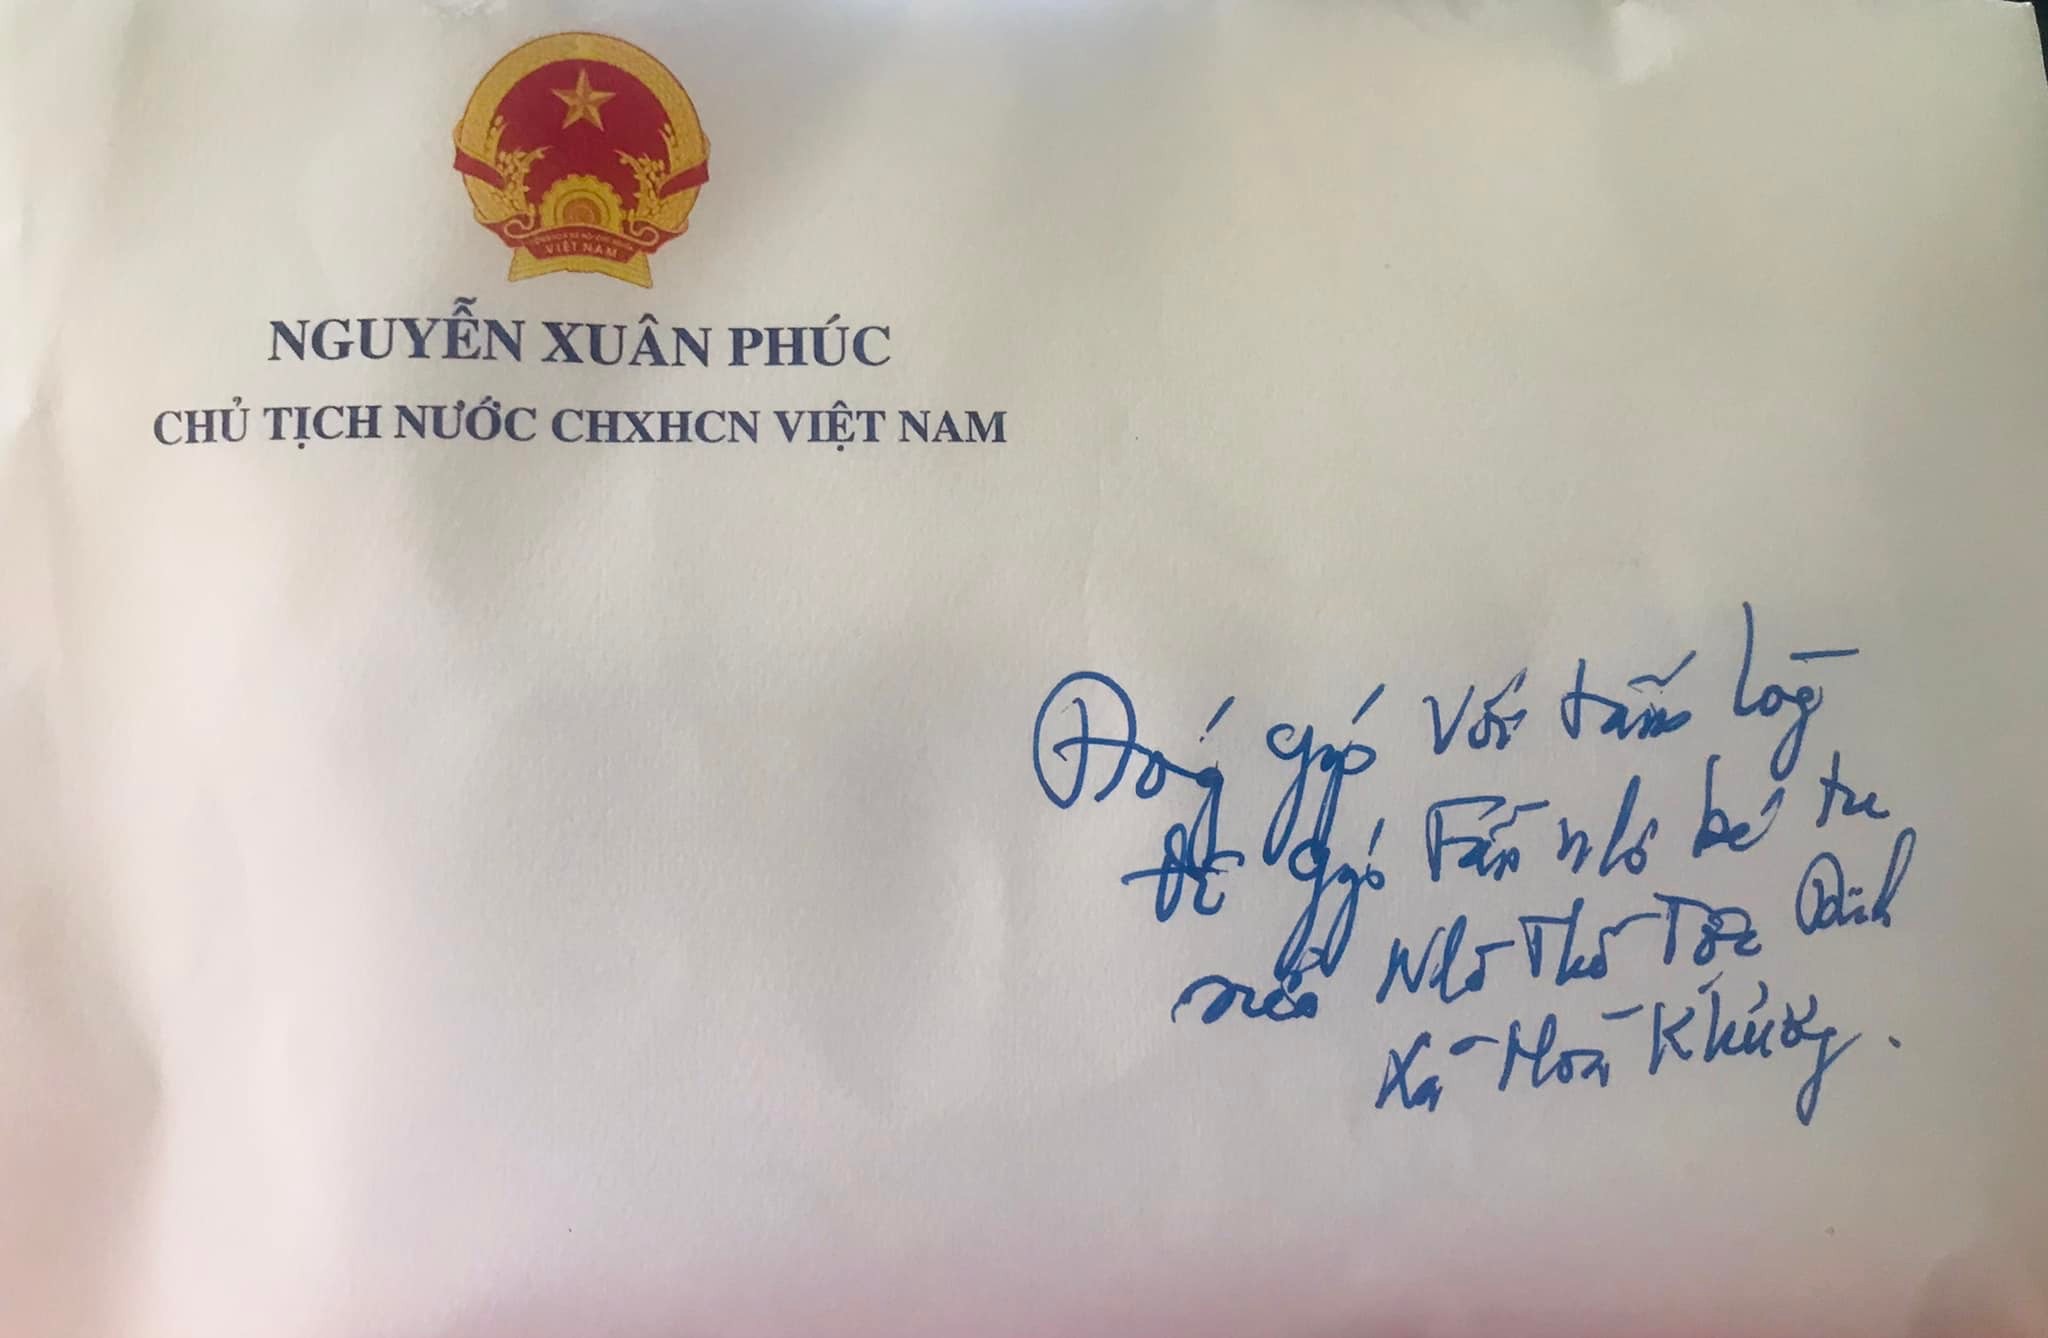 CỘNG HÒA XÃ HỘI CHỦ NGHĨA
VIỆT NAM
NGUYỄN XUÂN PHÚC
CHỦ TỊCH NƯỚC CHXHCN VIỆT NAM
Đóng góp với tấm lòng
để góp phần nhỏ bé tu
Nhà Thờ Tộc Đinh
Xã Hoà Khương.